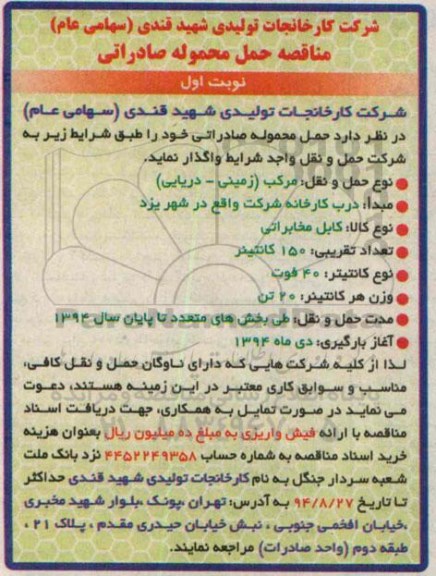 شرکت کارخانجات تولیدی شهید قندی (سهامی عام)
مناقصه حمل محموله صادراتی
نوبت اول
شرکت کارخانجات تولیدی شهید قندی (سهامی عام)
در نظر دارد حمل محموله صادراتی خود را طبق شرایط زیر به
شرکت حمل و نقل واجد شرایط واگذار نماید.
● نوع حمل و نقل: مرکب (زمینی - دریایی)
● مبدأ: درب کارخانه شرکت واقع در شهر یزد
● نوع کالا: کابل مخابراتی
● تعداد تقریبی: ۱۵۰ کانتینر
● نوع کانتیتر: ۴۰ فوت
● وزن هر کانتینر: ۲۰ تن
● مدت حمل و نقل: طی بخش های متعدد تا پایان سال ۱۳۹۴
● آغاز بارگیری: دی ماه ۱۳۹۴
لذا از کلیه شرکت هایی که دارای ناوگان حمل و نقل کافی،
مناسب و سوابق کاری معتبر در این زمینه هستند، دعوت
می نماید در صورت تمایل به همکاری، جهت دریافت اسناد
مناقصه با ارائه فیش واریزی به مبلغ ده میلیون ریال بعنوان هزینه
خرید اسناد مناقصه به شماره حساب ۴۴۵۲۲۴۹۳۵۸ نزد بانک ملت
شعبه سردار جنگل به نام کارخانجات تولیدی شهید قندی حداکثر
تا تاریخ ۹۴/۸/۲۷ به آدرس: تهران ،پونک ،بلوار شهید مخبری
،خیابان افخمی جنوبی ، نبش خیابان حیدری مقدم ، پلاک ۲۱ ،
طبقه دوم (واحد صادرات) مراجعه نمایند.